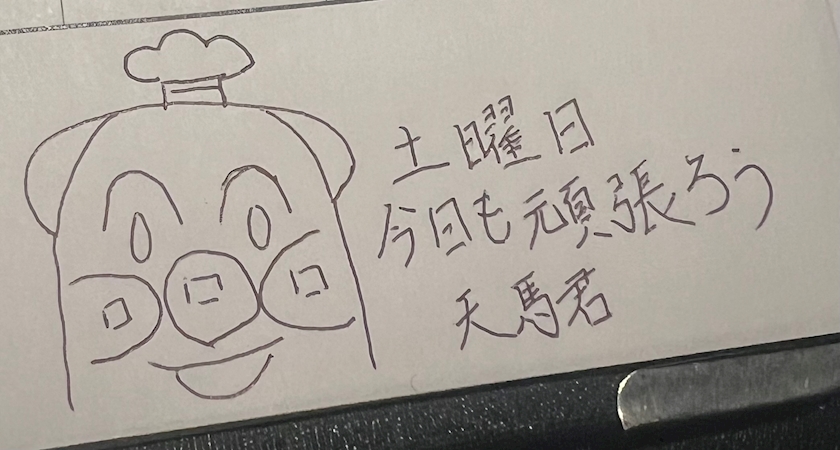 土曜日
今日も頑張ろう
天馬君